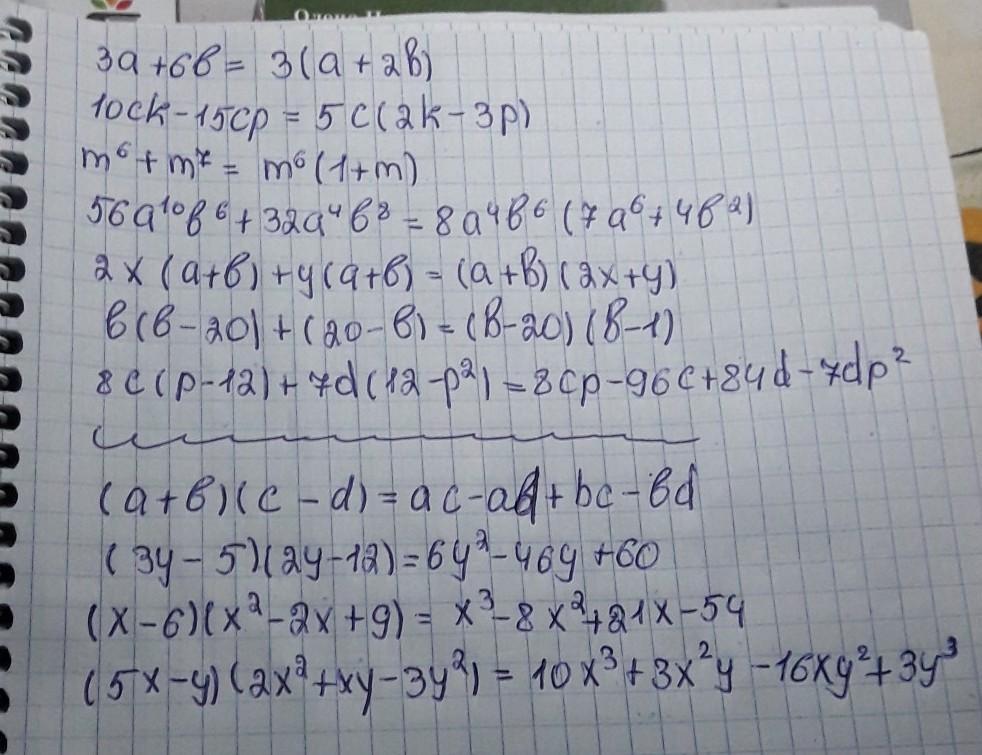 Олена П
3a+6b = 3(a+2b)
10ck-15cp = 5c(2k-3p)
m⁶+m⁷ = m⁶(1+m)
56a¹⁰b⁶+32a⁴b⁸ = 8a⁴b⁶(7a⁶+4b²)
2x(a+b)+y(a+b) = (a+b)(2x+y)
b(b-20)+(20-b) = (b-20)(b-1)
8c(p-12)+7d(12-p²) = 8cp-96c+84d-7dp²
(a+b)(c-d) = ac-ad+bc-bd
(3y-5)(2y-12) = 6y²-46y+60
(x-6)(x²-2x+9) = x³-8x²+21x-54
(5x-y)(2x²+xy-3y²) = 10x³+3x²y-16xy²+3y³